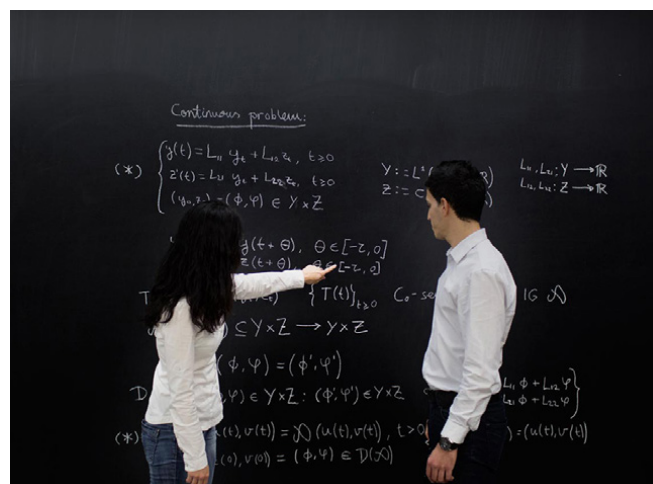 Continuous problem:
(*) { y(t) = L₁₁ y_t + L₁₂ z_t, t≥0
z'(t) = L₂₁ y_t + L₂₂ z_t, t≥0
(y₀, z₀) = (ϕ, φ) ∈ Y×Z
Y := L² R) L₁₁, L₂₁: Y → ℝ
Z := C R) L₁₂, L₂₂: Z → ℝ
y(t+θ), θ ∈ [-τ, 0]
z(t+θ), θ ∈ [-τ, 0]
T {T(t)}_{t≥0} C₀-se IG 𝒜
⊆ Y×Z → Y×Z
(ϕ, φ) = (ϕ', φ')
D φ) ∈ Y×Z : (ϕ', φ') ∈ Y×Z L₁₁ ϕ + L₁₂ φ
L₂₁ ϕ + L₂₂ φ }
(*) (t), v(t)) = 𝒜 (u(t), v(t)), t>0 ) = (u(t), v(t))
(0), v(0)) = (ϕ, φ) ∈ D(𝒜)